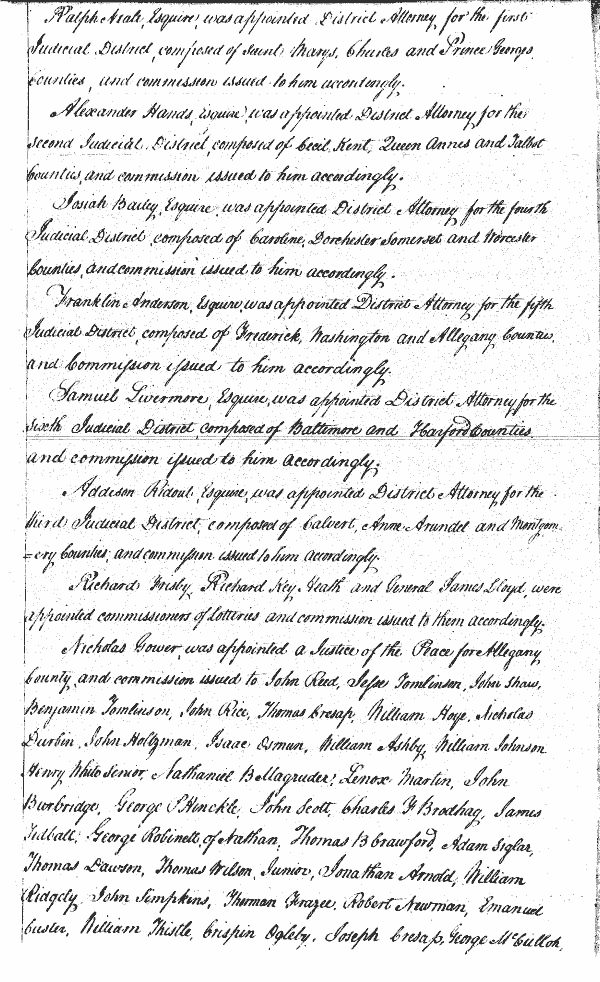 Ralph Neale, Esquire, was appointed District Attorney for the first
Judicial District, composed of Saint Marys, Charles and Prince Georges
Counties, and commission issued to him accordingly.
Alexander Hands, Esquire, was appointed District Attorney for the
second Judicial District, composed of Cecil, Kent, Queen Annes and Talbot
Counties, and commission issued to him accordingly.
Josiah Bailey, Esquire, was appointed District Attorney for the fourth
Judicial District, composed of Caroline, Dorchester, Somerset and Worcester
Counties, and commission issued to him accordingly.
Franklin Anderson, Esquire, was appointed District Attorney for the fifth
Judicial District, composed of Frederick, Washington and Allegany Counties,
and Commission issued to him accordingly.
Samuel Livermore, Esquire, was appointed District Attorney for the
sixth Judicial District, composed of Baltimore and Harford Counties,
and commission issued to him accordingly.
Addison Ridout, Esquire, was appointed District Attorney for the
third Judicial District, composed of Calvert, Anne Arundel and Montgom-
-ery Counties, and commission issued to him accordingly.
Richard Frisby, Richard Key Heath and General James Lloyd, were
appointed commissioners of Lotteries and commission issued to them accordingly.
Nicholas Gower, was appointed a Justice of the Peace for Allegany
County and commission issued to John Reed, Jesse Tomlinson, John Shaw,
Benjamin Tomlinson, John Rice, Thomas Cresap, William Hoye, Nicholas
Durbin, John Holtzman, Isaac Osmun, William Ashby, William Johnson
Henry White Senior, Nathaniel B Magruder, Lenox Martin, John
Burbridge, George P Hinckle, John Scott, Charles F Brodhag, James
Tidball, George Robinett of Nathan, Thomas B Crawford, Adam Siglar,
Thomas Dawson, Thomas Wilson, Junior, Jonathan Arnold, William
Ridgely, John Simpkins, Thurman Frazee, Robert Newman, Emanuel
Custer, William Thistle, Crispin Ogleby, Joseph Cresap, George McCulloh,